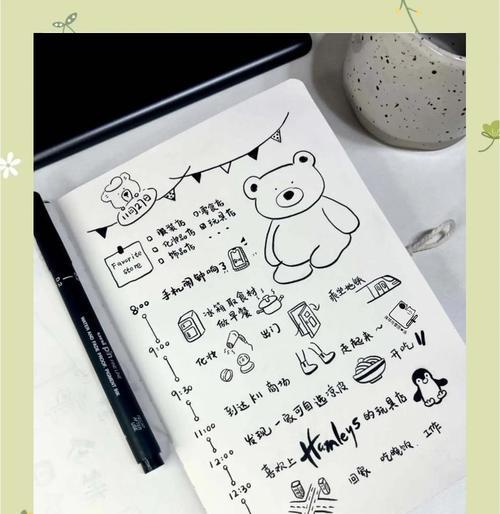 11月21日
Favorite store
□ 服装店 □ 零食店
□ 化妆品店 □ 玩具店
□ 饰品店 ....
手机闹钟响了
8:00
冰箱取食材
做早餐
乘坐地铁
9:00
化妆
出门
走起来~
9:30
到达K11商场
开吃!!
11:00
发现一家可自选凉皮
12:00
喜欢上 Hamleys 的玩具店
12:30
回家 吃晚饭、工作
0.2
uni pin FINE LINE
WATER AND FADE PROOF, PIGMENT INK